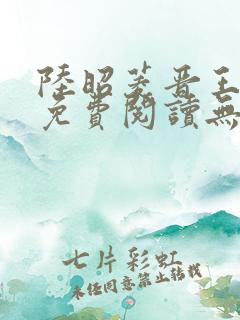 陸昭菱晋王
免費閱讀無
七片彩虹
未经同意禁止转载